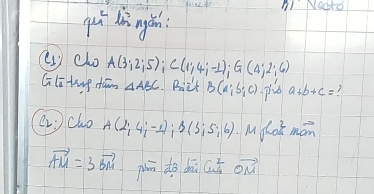 Trả lời ngắn:
C1: Cho A(3;2;5); C(1;4;-1); G(4;2;6)
G là trọng tâm ΔABC. Biết B(a;b;c). Tính a+b+c=?
C2: Cho A(2;4;-1); B(3;5;6). M thoả mãn
AM = 3BM tìm độ dài của OM